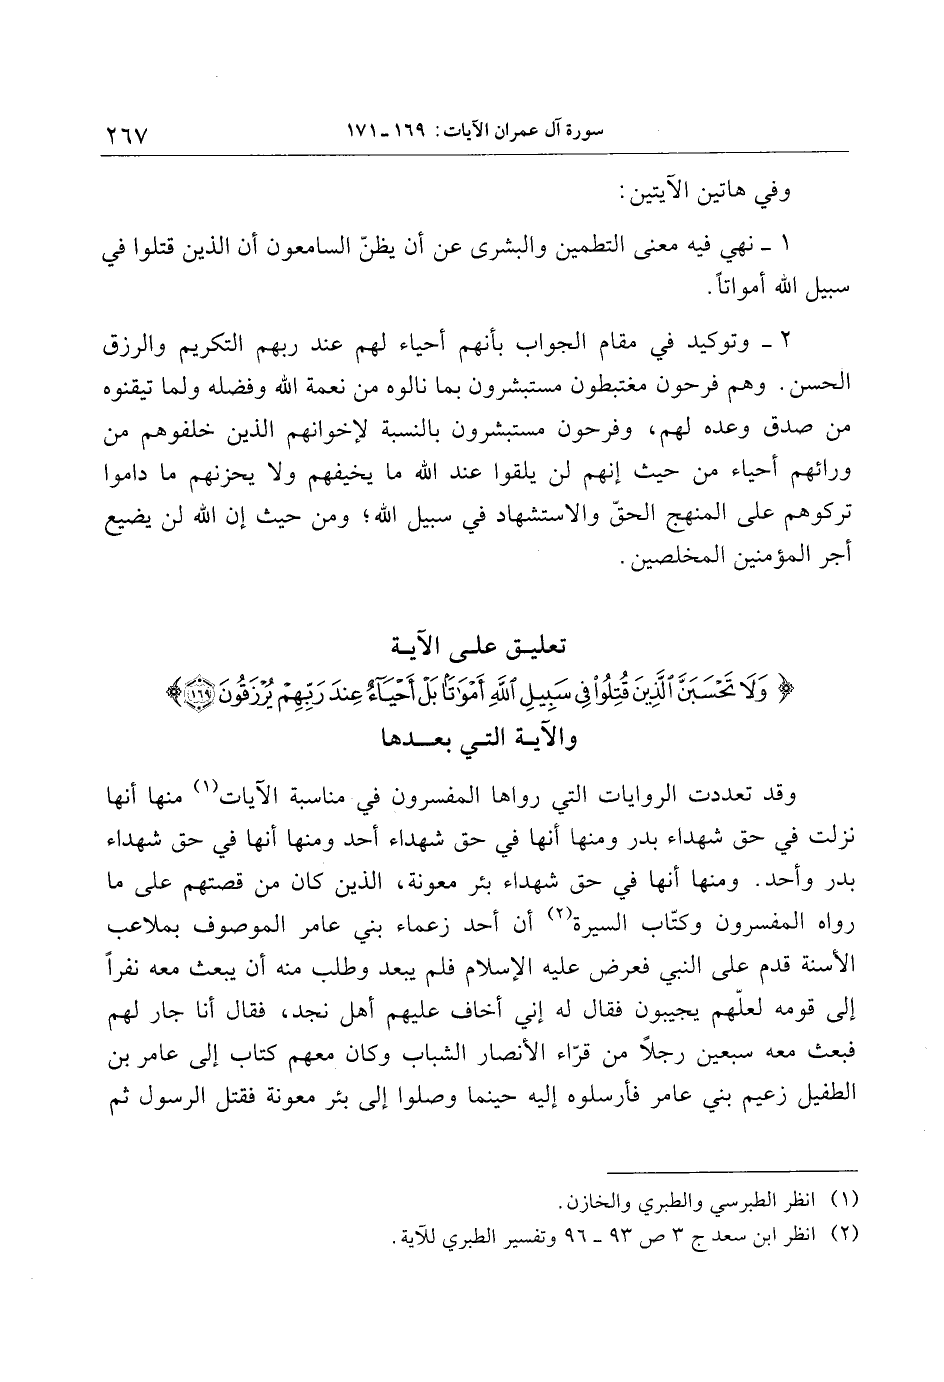 سورة آل عمران الآيات: ١٦٩ ـ ١٧١ ٢٦٧
وفي هاتين الآيتين:
١ ـ نهي فيه معنى التطمين والبشرى عن أن يظنّ السامعون أن الذين قتلوا في
سبيل الله أمواتاً.
٢ ـ وتوكيد في مقام الجواب بأنهم أحياء لهم عند ربهم التكريم والرزق
الحسن. وهم فرحون مغتبطون مستبشرون بما نالوه من نعمة الله وفضله ولما تيقنوه
من صدق وعده لهم، وفرحون مستبشرون بالنسبة لإخوانهم الذين خلفوهم من
ورائهم أحياء من حيث إنهم لن يلقوا عند الله ما يخيفهم ولا يحزنهم ما داموا
تركوهم على المنهج الحقّ والاستشهاد في سبيل الله؛ ومن حيث إن الله لن يضيع
أجر المؤمنين المخلصين.
تعليق على الآية
﴿ وَلَا تَحْسَبَنَّ ٱلَّذِينَ قُتِلُوا۟ فِى سَبِيلِ ٱللَّهِ أَمْوَٰتًۢا بَلْ أَحْيَآءٌ عِندَ رَبِّهِمْ يُرْزَقُونَ ١٦٩ ﴾
والآية التي بعدها
وقد تعددت الروايات التي رواها المفسرون في مناسبة الآيات(١) منها أنها
نزلت في حق شهداء بدر ومنها أنها في حق شهداء أحد ومنها أنها في حق شهداء
بدر وأحد. ومنها أنها في حق شهداء بئر معونة، الذين كان من قصتهم على ما
رواه المفسرون وكتّاب السيرة(٢) أن أحد زعماء بني عامر الموصوف بملاعب
الأسنة قدم على النبي فعرض عليه الإسلام فلم يبعد وطلب منه أن يبعث معه نفراً
إلى قومه لعلّهم يجيبون فقال له إني أخاف عليهم أهل نجد، فقال أنا جار لهم
فبعث معه سبعين رجلاً من قرّاء الأنصار الشباب وكان معهم كتاب إلى عامر بن
الطفيل زعيم بني عامر فأرسلوه إليه حينما وصلوا إلى بئر معونة فقتل الرسول ثم
(١) انظر الطبرسي والطبري والخازن.
(٢) انظر ابن سعد ج ٣ ص ٩٣ ـ ٩٦ وتفسير الطبري للآية.